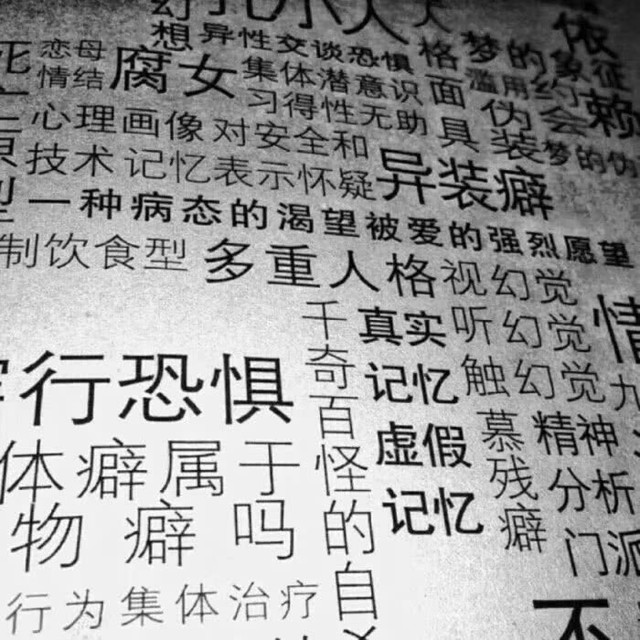 幻 孔 小人
想 异性交谈恐惧 格梦的象征
恋母情结 腐女 集体潜意识 面 滥用
心理画像 习得性无助 具 伪装
对安全和 梦的伪
技术 记忆表示怀疑 异装癖
一种病态的渴望被爱的强烈愿望
制饮食型 多重人格 视幻觉
听幻觉
触幻觉
真实记忆
虚假记忆
情
行恐惧
千奇百怪的自
慕残癖
精神分析门派
体癖属于
物癖吗
行为集体治疗